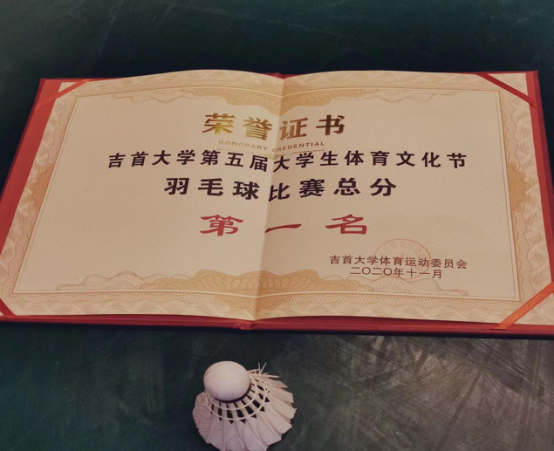 荣誉证书
HONORARY CREDENTIAL
吉首大学第五届大学生体育文化节
羽毛球比赛总分
第一名
吉首大学体育运动委员会
二〇二〇年十一月